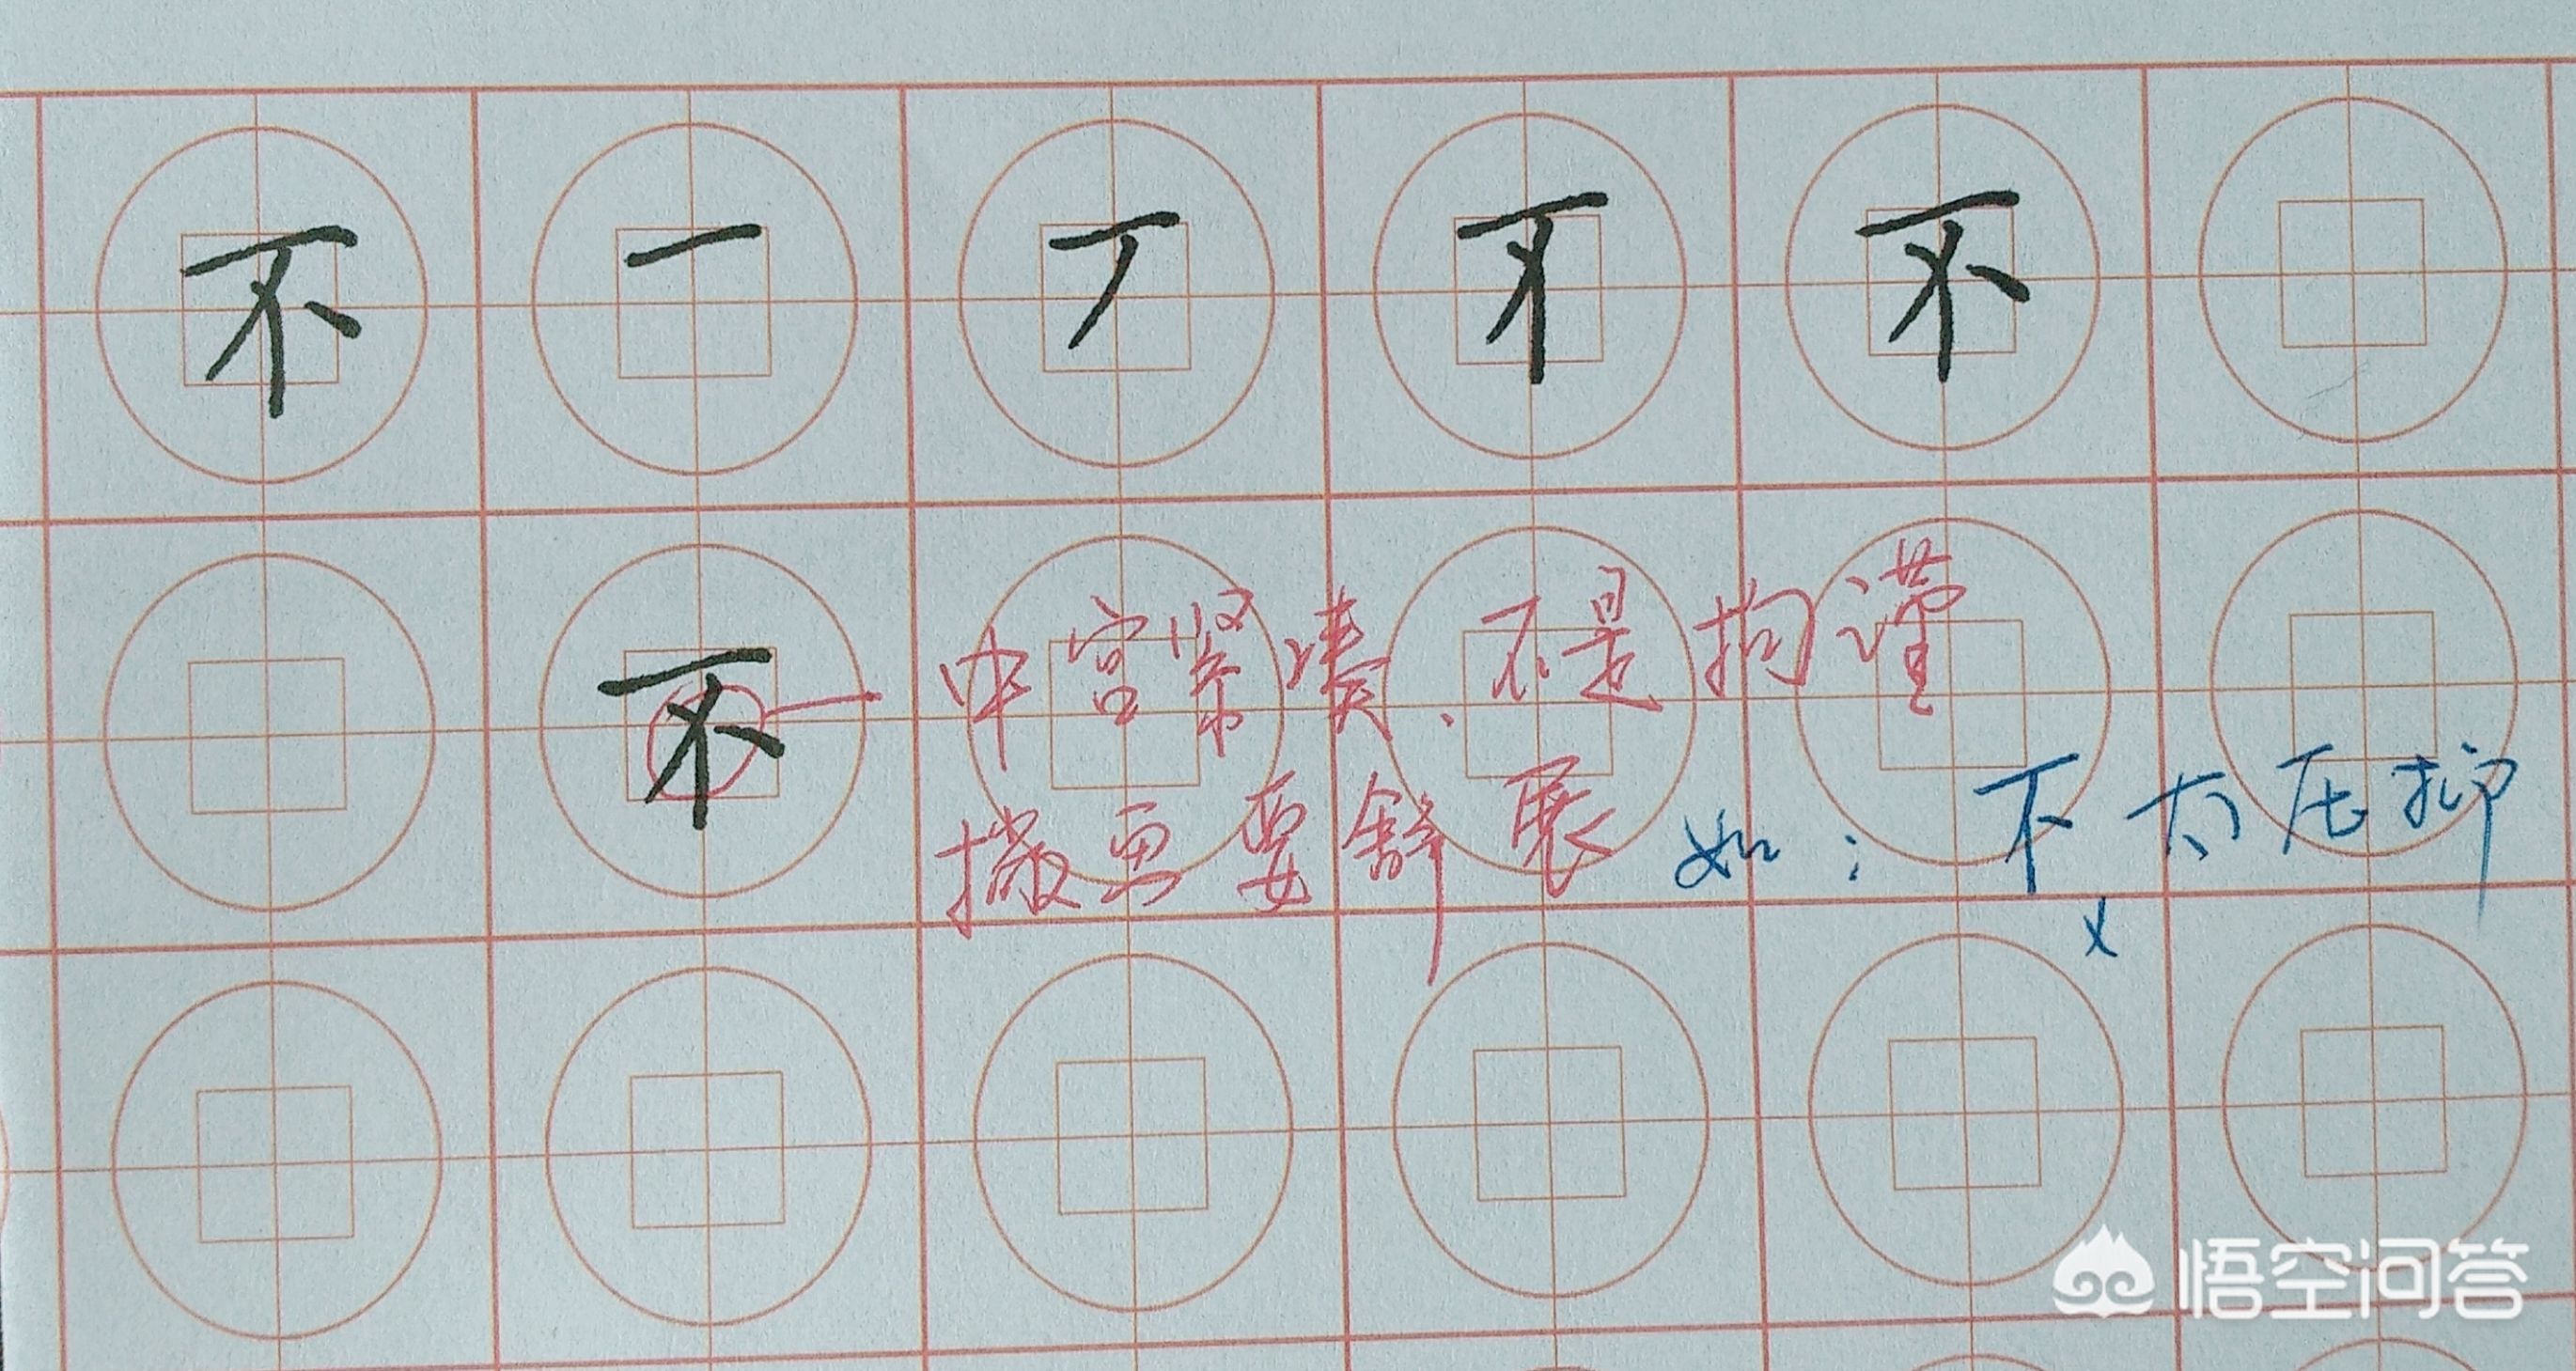 不 一 丆 不 不
不 中宫紧凑、不是拘谨
撇画要舒展 如:不 太压抑
x
悟空问答